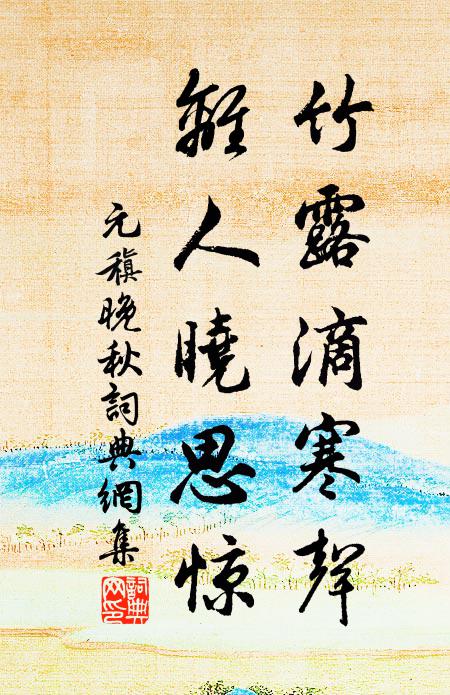 竹露滴寒聲
離人曉思惊
元稹晚秋詞典網集
詞典
网印